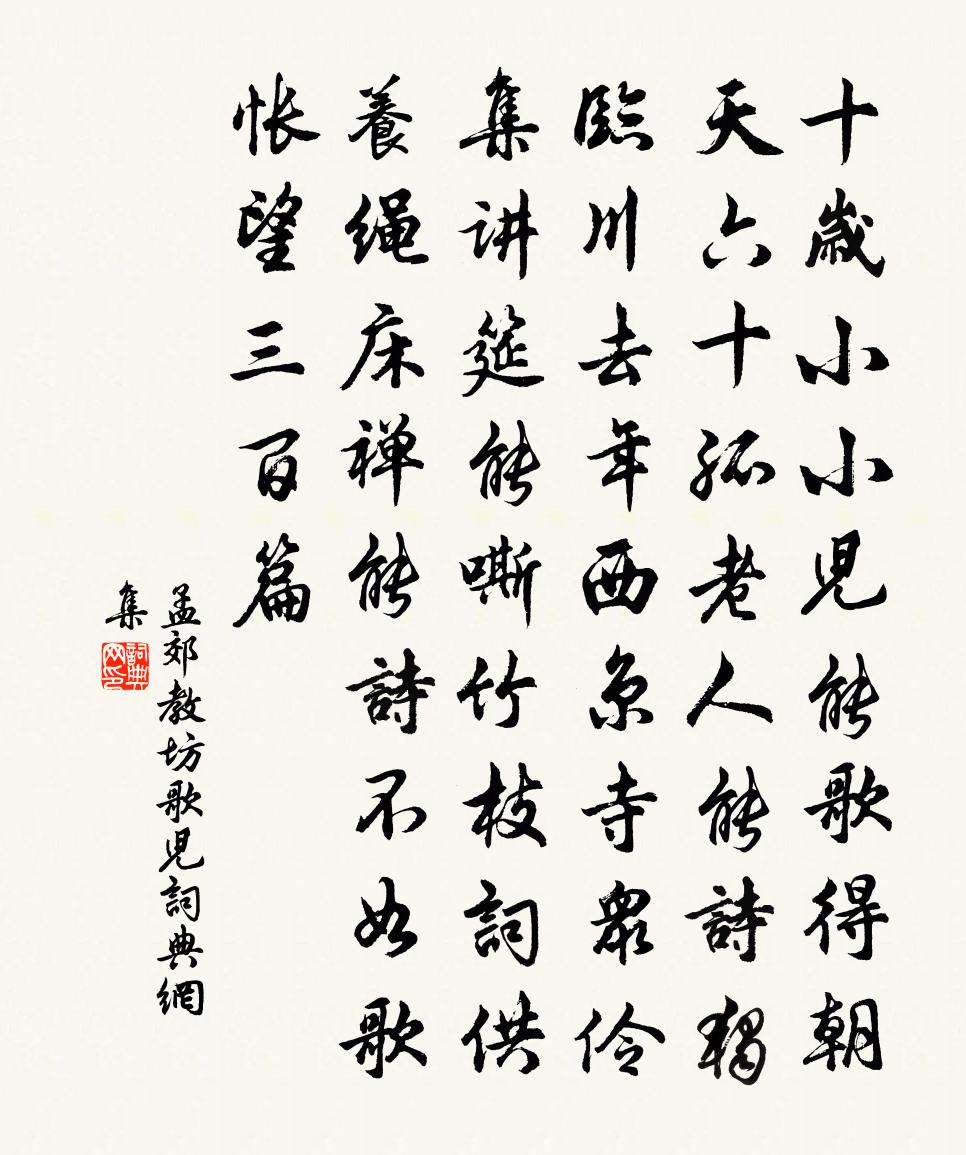 十歲小小児能歌得朝
天六十孤老人能詩獨
臨川去年西京寺眾伶
集讲筵能嘶竹枝詞供
養绳床禅能詩不如歌
怅望三百篇
孟郊教坊歌児詞典網
集
詞典网印